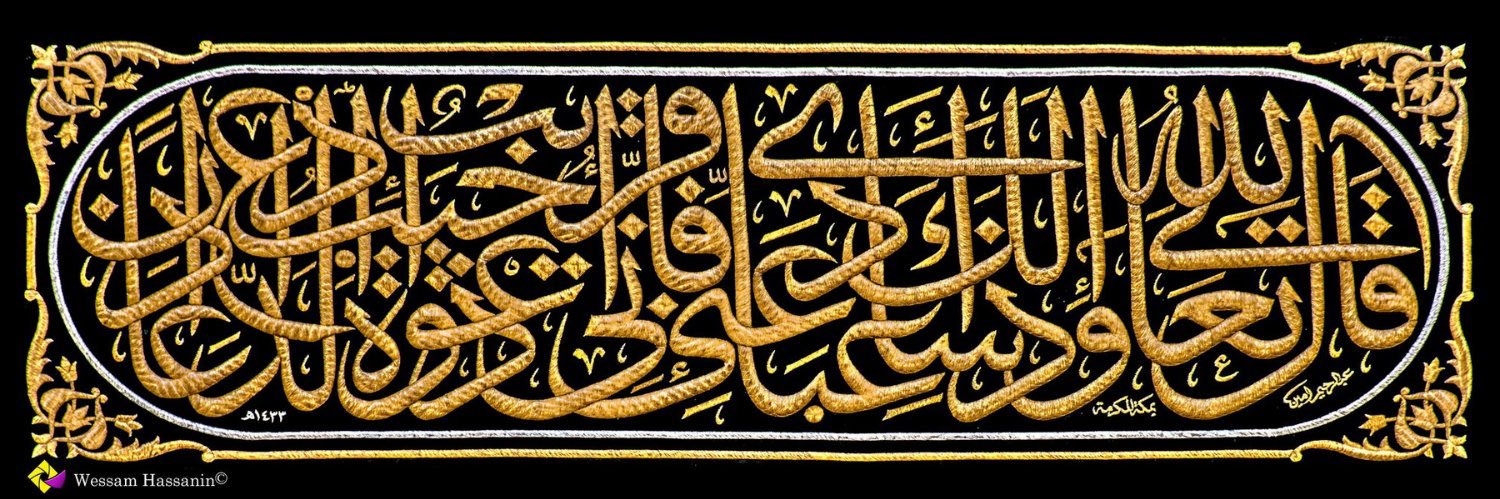 قال الله تعالى وإذا سألك عبادي عني فإني قريب أجيب دعوة الداع إذا دعان
عبدالرحيم أمين
بمكة المكرمة
١٤٣٣هـ
Wessam Hassanin©